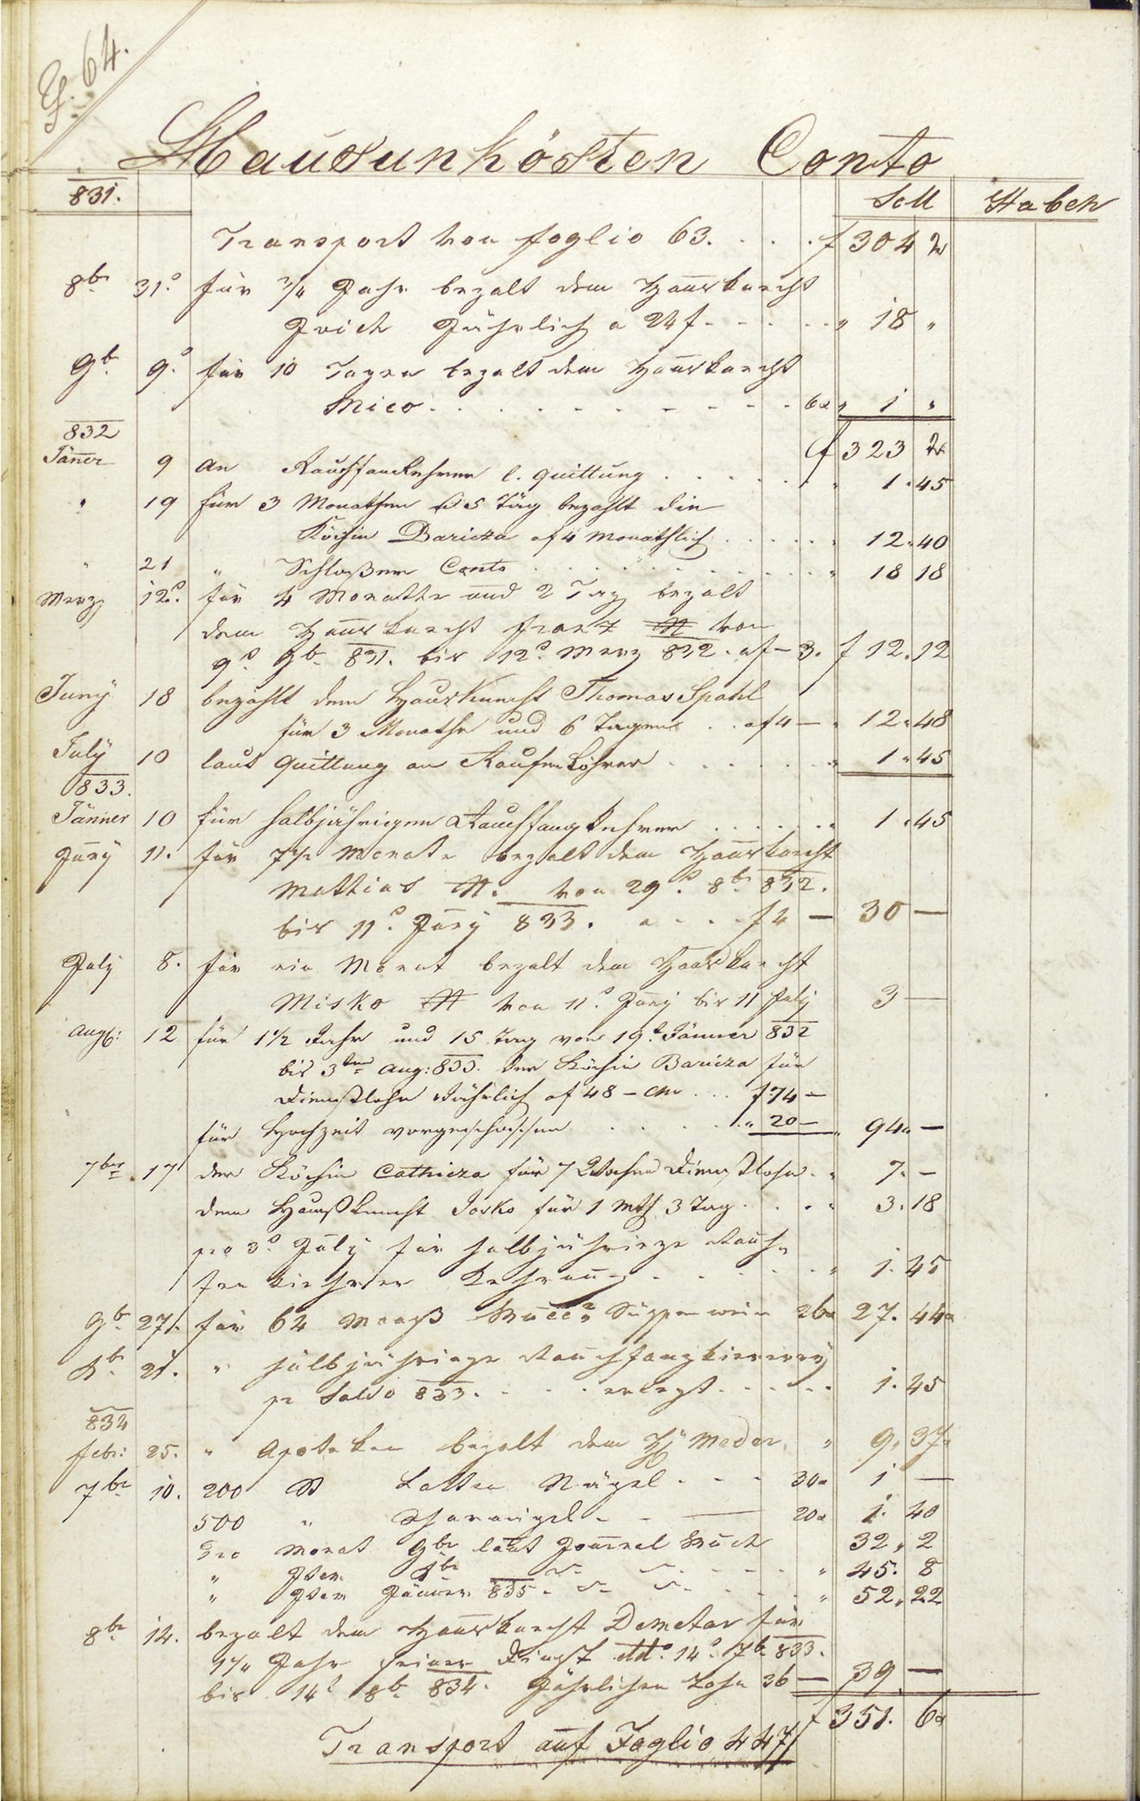 F. 64.
Hausunkösten Conto
831.
Soll Haben
Transport von foglio 63. f 304 2x
8br 31. für 3/4 Jahr bezalt dem Hausknecht
Jährlich a 24 f " 18 "
9b. 9. für 10 Tagen bezalt dem Hausknecht
Mico 6x " 1 "
832 f 323 2x
Jänner 9 An Rauchfankehrer l. quittung " 1 " 45
" 19 für 3 Monathen 5 Täg bezahlt die
Köchin Baricza af 4 Monathlich " 12 " 40
" 21 " Schloßer Conto " 18 18
Merz 12. für 4 Monathe und 2 Tag bezalt
dem Hausknecht Franz N von
9. 9b. 831. bis 12. Merz 832. af - 3. f 12. 12
Juny 18 bezahlt dem Hausknecht Thomas Spahl
für 3 Monathe und 6 Tagen af 4 — " 12 " 48
July 10 laut Quittung an " 1 " 45
833.
Jänner 10 für halbjährigen Rauchfangkehrer " 1 " 45
Juny 11. für 7 1/2 Monate bezalt dem Hausknecht
Mathias N. von 29. 8b. 832.
bis 11. Juny 833. a f 4 — 30 —
July 8. für ein Monat bezalt dem Hausknecht
Misko N von 11. Juny bis 11 July 3 —
Aug: 12 für 1 1/2 Jahr und 15 Tag von 19. Jänner 832
bis 3 Aug: 833. der Köchin Baricza für
Dienstlohn Jährlich af 48 - f 74 —
für Hochzeit vorgeschossen " 20 — " 94 " —
7ber 17 der Köchin Cathicza für 7 Wochen Dienstlohn " 7. —
dem Haußknecht Josko für 1 Mth 3 Tag " 3. 18
pro 3. July für halbjährige
" 1. 45
9b. 27. für 64 Maaß Suppen wein 26x 27. 44x
21. " halbjährige
pr Saldo 833. erlegt 1. 45
834
Febr: 25. " Apoteken bezalt dem H. Meder " 9. 37
7br 10. 200 St Latten Nägel 30x 1 —
500 " 20x 1. 40
Pro Monat 9br laut Journal Buch 32. 2
" " 45. 8
" Jänner 835 " 52. 22
8br 14. bezalt dem Hausknecht Demeter für
Jahr seinen Dienst 14. 7b. 833.
bis 14 8b. 834. Jährlichen Lohn 36 — 39 —
f 351. 6x
Transport auf Foglio 447